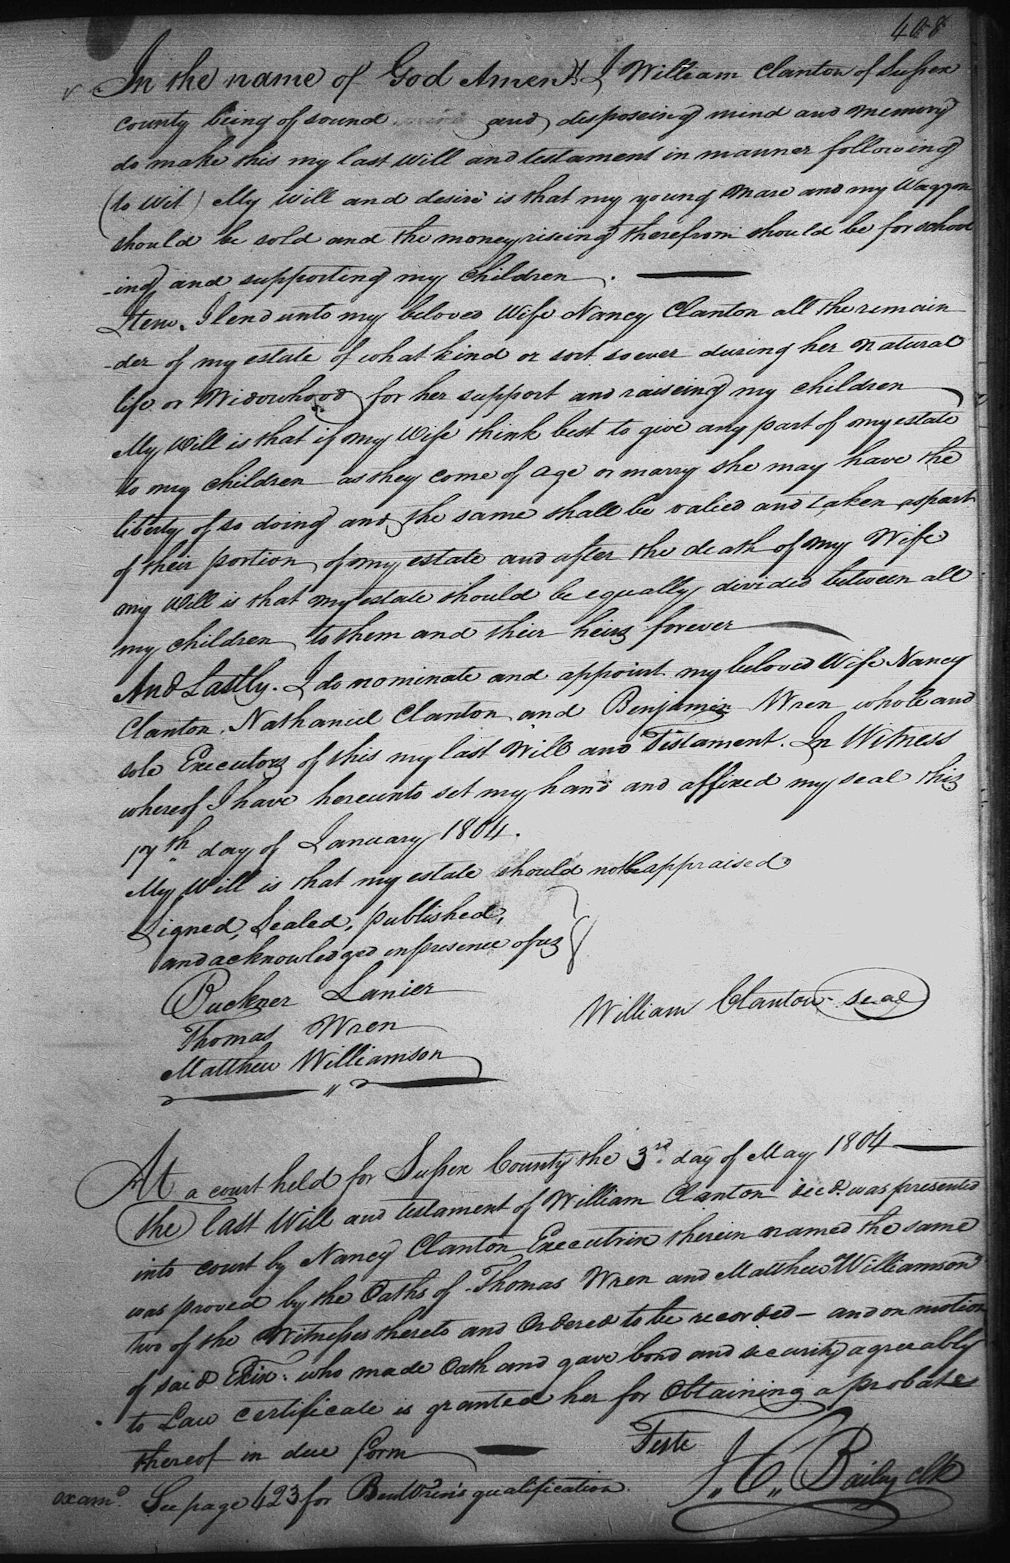 408
In the name of God Amen. I William Clanton of Sussex
county being of sound and disposeing mind and memory
do make this my last will and testament in manner following
(to wit) My will and desire is that my young mare and my Waggon
should be sold and the money riseing therefrom should be for school
-ing and supporting my children.
Item. I lend unto my beloved Wife Nancy Clanton all the remain
-der of my estate of what kind or sort soever during her natural
life or Widowhood for her support and raiseing my children
My Will is that if my Wife think best to give any part of my estate
to my children as they come of age or marry she may have the
liberty of so doing and the same shall be valied and taken as part
of their portion of my estate and after the death of my Wife
my Will is that my estate should be equally divided between all
my children to them and their heirs forever
And Lastly. I do nominate and appoint my beloved Wife Nancy
Clanton, Nathaniel Clanton and Benjamin Wren whole and
sole Executors of this my last Will and Testament. In Witness
whereof I have hereunto set my hand and affixed my seal this
17th day of January 1804.
My Will is that my estate should not be appraised
Signed, Sealed, published,
and acknowledged in presence of us
Buckner Lanier
William Clanton seal
Thomas Wren
Matthew Williamson
At a court held for Sussex County the 3rd day of May 1804
the last Will and testament of William Clanton decd. was presented
into court by Nancy Clanton Executrix therein named the same
was proved by the Oaths of Thomas Wren and Matthew Williamson
two of the Witnesses thereto and Ordered to be recorded - and on motion
of said Exix. who made Oath and gave bond and security agreeably
to Law certificate is granted her for Obtaining a probate
thereof in due form
Teste
J. C. Bailey clk
examd. See page 423 for Ben Wren's qualification